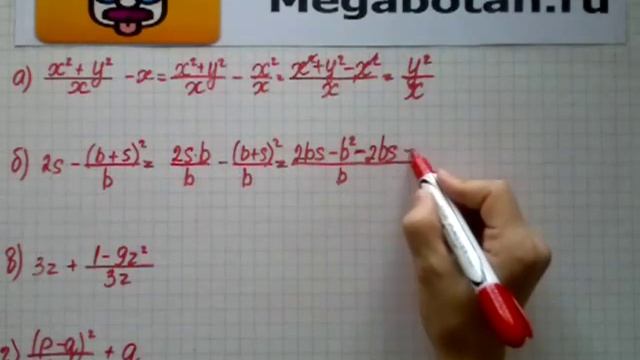 Megabotan.ru
а) (x² + y²)/x - x = (x² + y²)/x - x²/x = (x² + y² - x²)/x = y²/x
б) 2s - (b+s)²/b = 2s·b/b - (b+s)²/b = (2bs - b² - 2bs -)/b
в) 3z + (1 - 9z²)/3z
г) (p - q)² + q